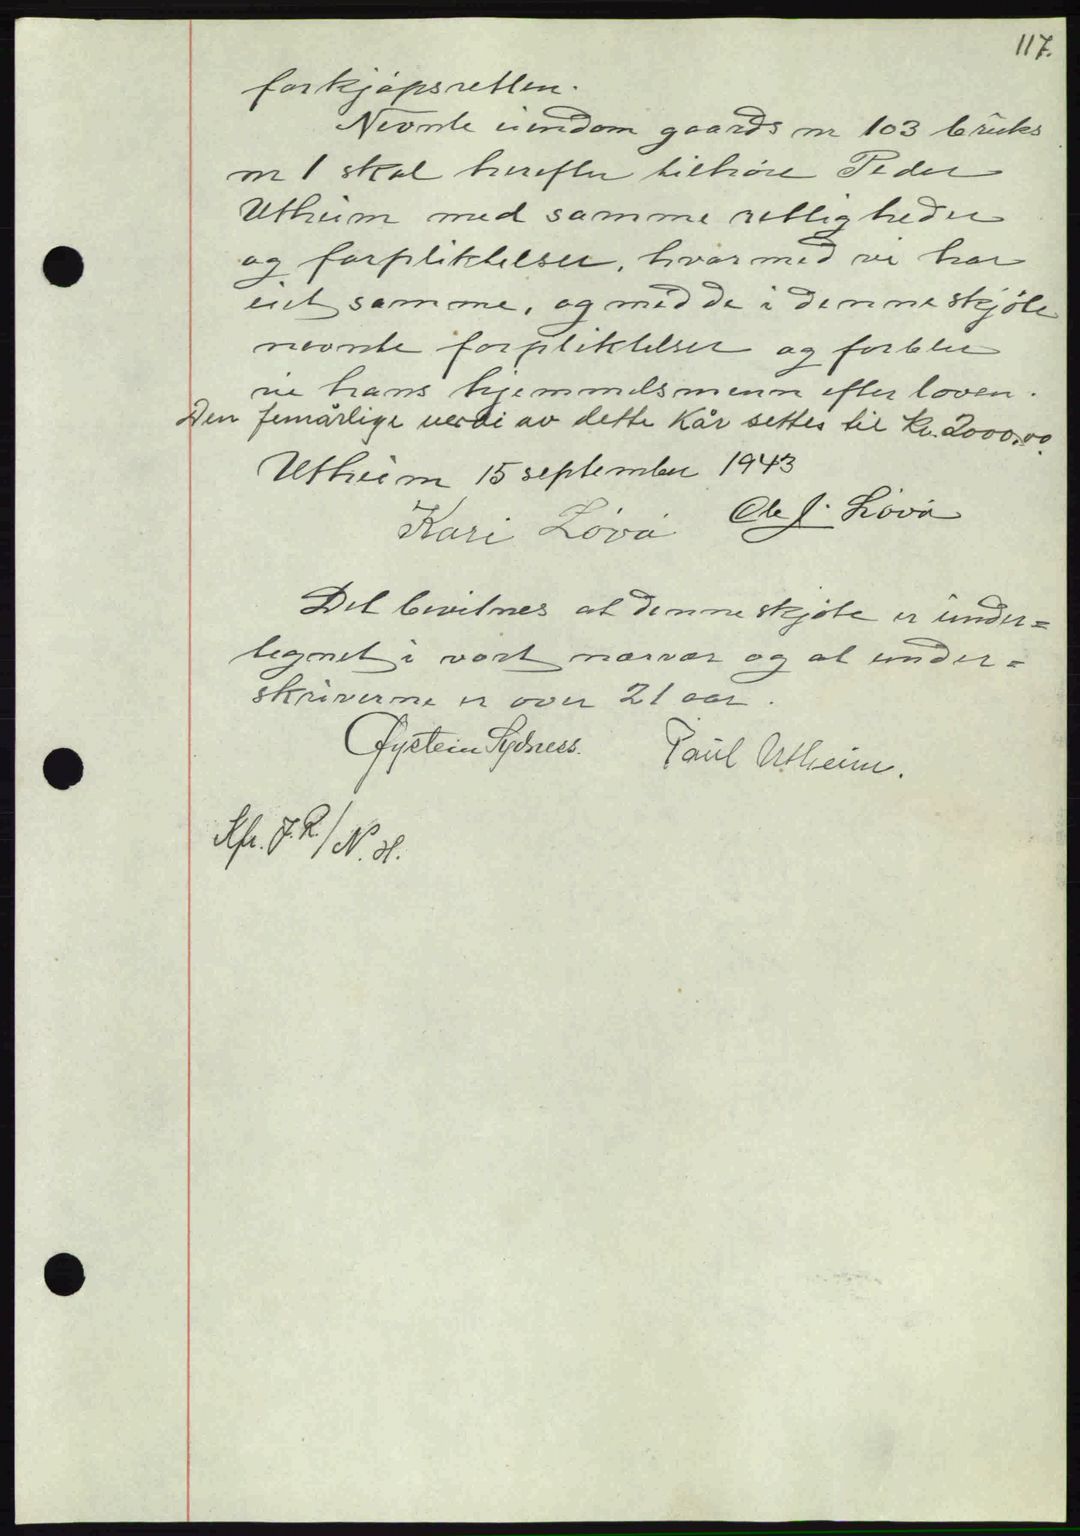 117.
forkjøpsretten.
Nevnte eiendom gaards nr 103 bruks
nr 1 skal herefter tilhøre Peder
Utheim med samme rettigheder
og forpliktelser, hvormed vi har
eiet samme, og med de i denne skjøte
nevnte forpliktelser og forblir
vi hans hjemmelsmenn efter loven.
Den femårlige verdi av dette kår settes til kr. 2000,00
Utheim 15 september 1943
Kari Løvå Ole J. Løvå
Det bevitnes at denne skjøte er under=
tegnet i vort nærvær og at under=
skriverne er over 21 aar.
Øystein Sydness. Paul Utheim.
Kfr. J.R./N.H.